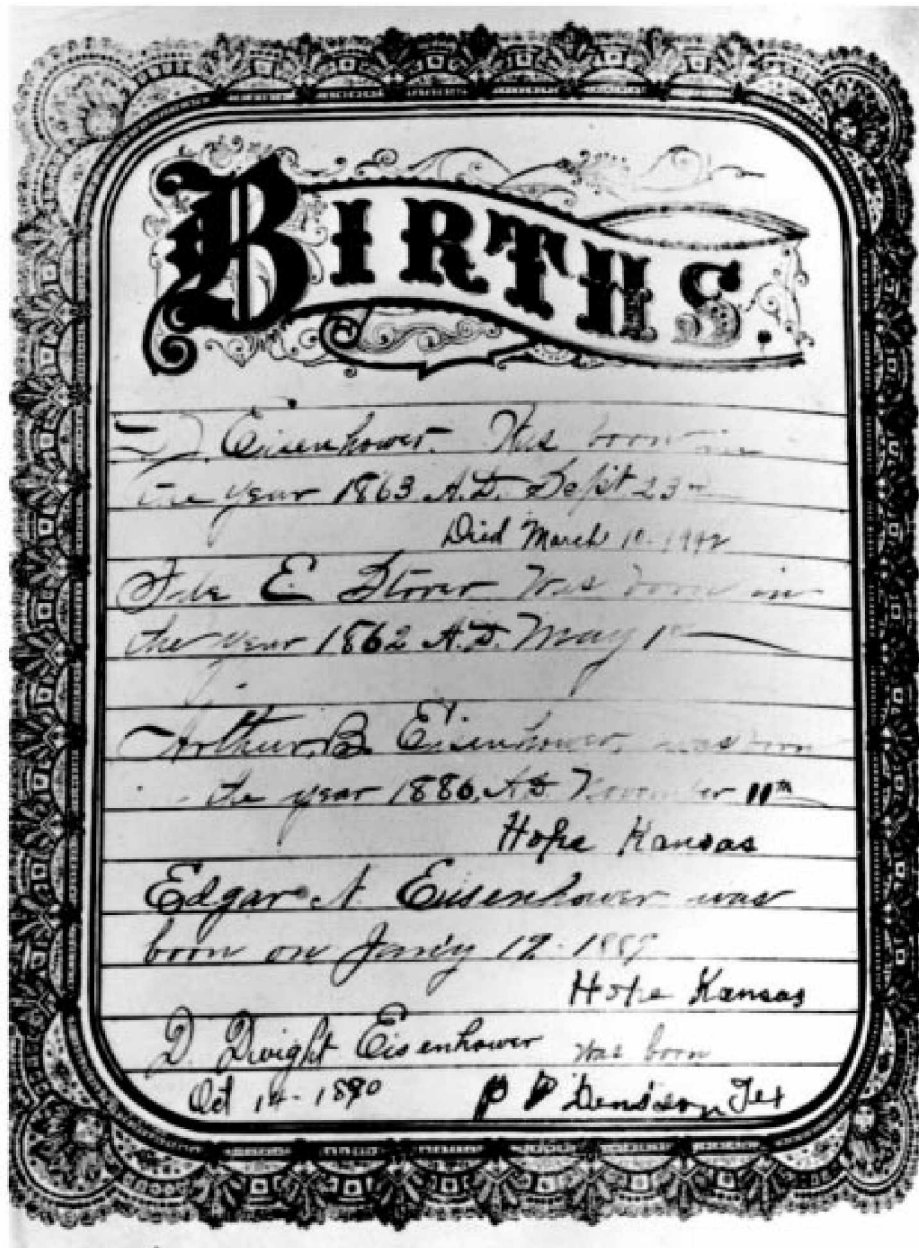 BIRTHS.
D. J. Eisenhower. Was born in
the year 1863 A.D. Sept 23rd
Died March 10. 1942
Ida E Stover Was born in
the year 1862 A.D. May 1st
Arthur B. Eisenhower, was born
the year 1886, A.D. November 11th
Hope Kansas
Edgar N. Eisenhower was
born on Jan'y 19. 1889
Hope Kansas
D. Dwight Eisenhower was born
Oct 14 - 1890 Denison, Tex